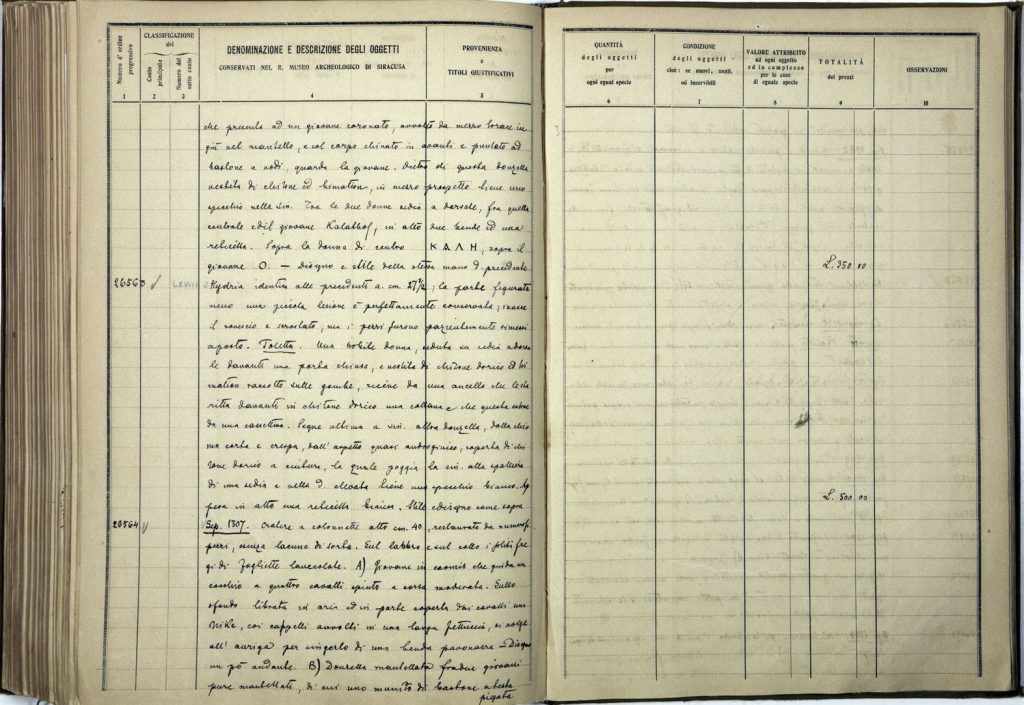 Numero d'ordine progressivo
CLASSIFICAZIONE del
Conto principale
Numero del sotto conto
DENOMINAZIONE E DESCRIZIONE DEGLI OGGETTI
CONSERVATI NEL R. MUSEO ARCHEOLOGICO DI SIRACUSA
PROVENIENZA
e
TITOLI GIUSTIFICATIVI
1 2 3 4 5
che presenta ad un giovane coronato, avvolto da mezzo torace in
giù nel mantello, e col corpo chinato in avanti e puntato ad
bastone a nodi, guarda la giovane. Dietro di questa donzella
vestita di chitone ed himation, in mezzo prospetto tiene uno
specchio nella sin. Tra le due donne sedia a dorsale, fra quella
centrale ed il giovane Kalathos, in alto due bende ed una
Sopra la donna di centro ΚΑΛΗ, sopra il
giovane O. — disegno e stile della stessa mano d. precedente
26563 LXVIII Hydria identica alle precedenti a. cm. 27 1/2; la parte figurata
meno una piccola lesione è perfettamente conservata; invece
il rovescio è scrostato, ma i pezzi furono pazientemente rimessi
a posto. Toletta. Una nobile donna, seduta su sedia a dorsa
le davanti una porta chiusa, e vestita di chitone dorico ed hi
mation raccolto sulle gambe, riceve da una ancella che le sta
ritta davanti in chitone dorico una collana che questa
da una cassettina. Segue ultima a sin. altra donzella, dalla chio
ma corta e crespa, dall'aspetto quasi androginico, coperta di chi
tone dorico a cintura, la quale poggia la sin. alla spalliera
di una sedia e nella d. elevata tiene uno specchio Ap
pesa in alto una Stile e disegno come sopra
26564 Sep. 1307. Cratere a colonnette alto cm. 40, restaurato da numerosi
pezzi, senza lacune di sorta. Sul labbro e sul collo i soliti fre
gi di foglioline lanceolate. A) Giovane in che guida un
cocchio a quattro cavalli spinto a corsa moderata. Sullo
sfondo librata in aria ed in parte coperta dai cavalli una
Nike, coi cappelli avvolti in una larga fettuccia, si volge
all'auriga per cingerlo di una benda pavonazza — Disegno
un pò andante. B) Donzella mantellata fra due giovani
pure mantellati, di cui uno munito di bastone a testa
piegata
QUANTITÀ
degli oggetti
per
ogni egual specie
CONDIZIONE
degli oggetti
cioè: se nuovi, usati,
od inservibili
VALORE ATTRIBUITO
ad ogni oggetto
ed in complesso
per le cose
di eguale specie
TOTALITÀ
dei prezzi
OSSERVAZIONI
6 7 8 9 10
L. 350 00
L. 500 00